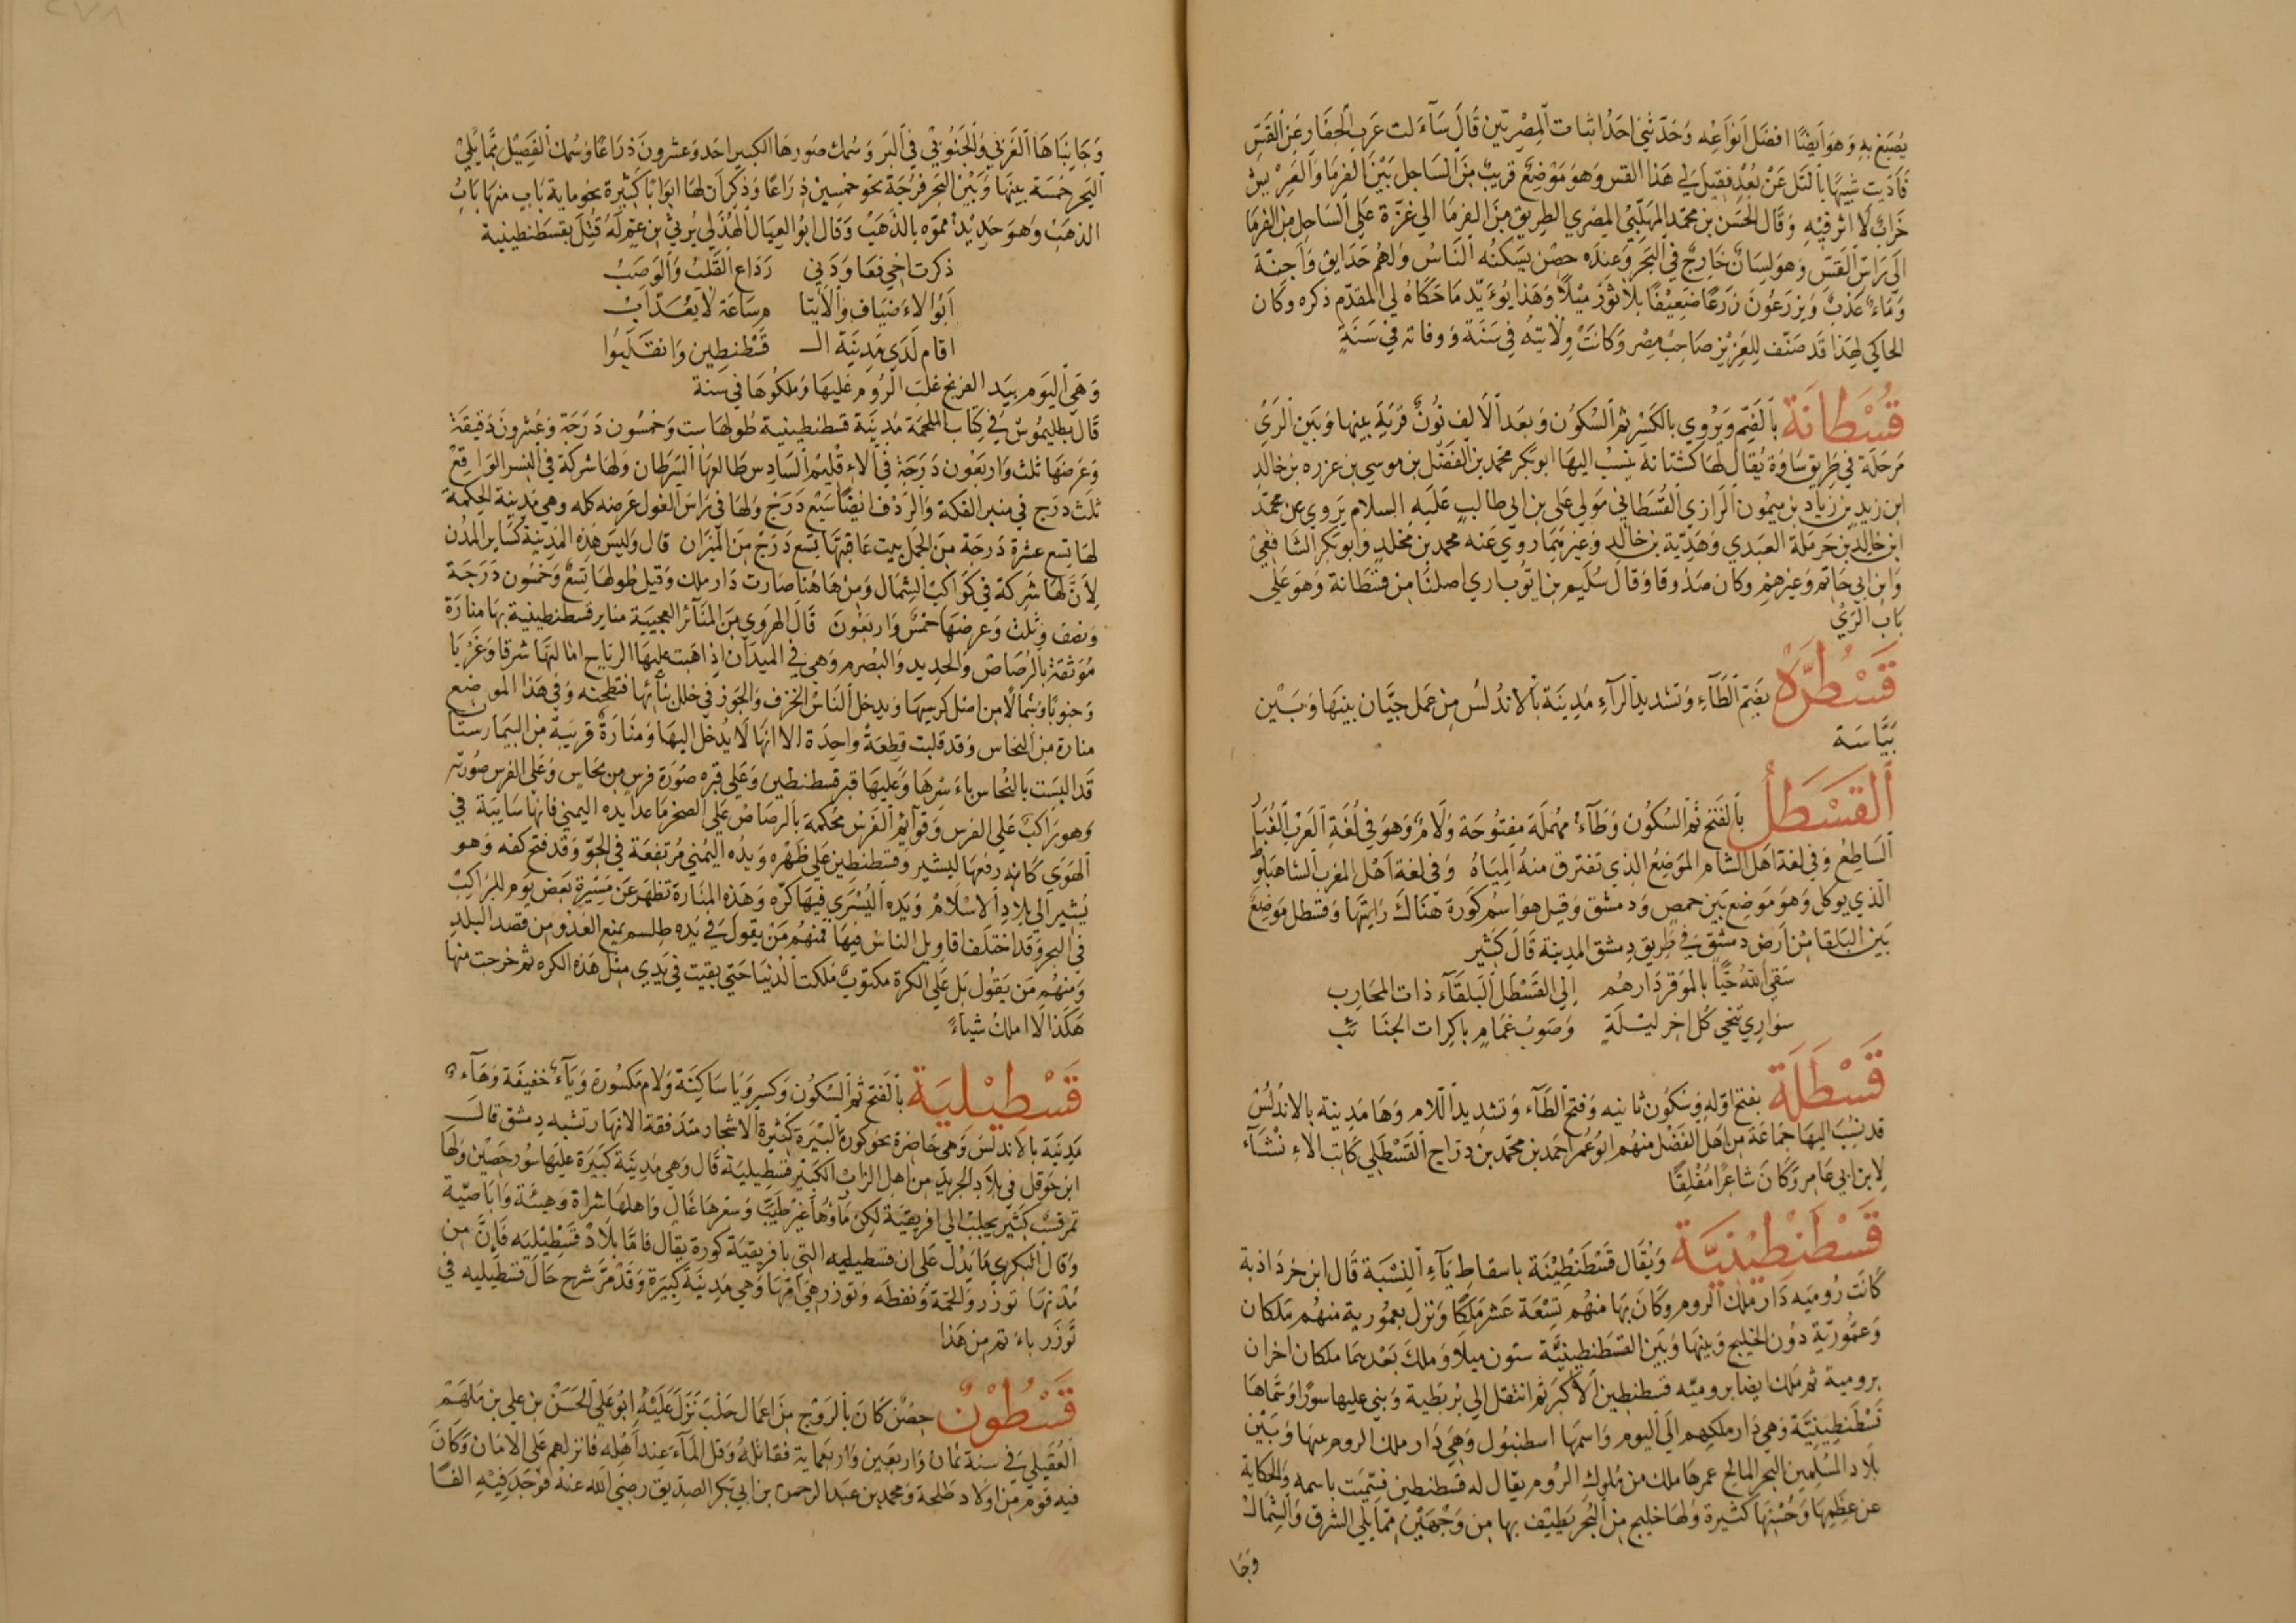 يُصْبَغ به وَهوَ اَيضًا افضَل اَنوَاعِه وَحَدّثني احَدُ اثبات اَلمِصْرِيّين قَالَ سَآءَلت عَرَبَ الجفَارِ عَنِ القَسّ
فَاَرَيتُ شَبيهًا بالتل عَنْ بُعْدٍ فقِيلَ لي هَذا القس وَهوَ مَوْضِعٌ قريبٌ مِنَ السَاحل بَيْنَ الفرمَا وَالعَرِيش
خَرابٌ لَا اثر فيْهِ وَقَال الحَسَن بن محمّد المهَلّبيّ المِصْري الطِريق مِنَ الفرمَا الي غزّة عَلي السَاحِل مِنَ الفرمَا
الَي رَاسِ القَسّ وَهوَ لِسَانٌ خَارِجٌ في البَحرِ وَعندَه حصْن يَسكنُه النَاسُ وَلهُم حَدَايق وَاَجنّة
وَمَاءٌ عَذبٌ وَيزرَعُونَ زَرعًا ضَعِيْفًا بلا ثَوْر مَيْلًا وَهَذا يُؤَيّد مَا حَكاهُ لي المقدّم ذكره وكَان
الحاكي لِهَذا قَد صَنّف لِلعَزيْز صَاحِب مِصْر وَكانَتْ وِلايتهُ في سَنَة وَوفاته في سَنَةٍ
قُسْطَانَة باَلضَمّ وَيُرْوي بالكَسْر ثم السُكوُن وَبَعَد الَالِف نُونٌ قَريَة بينها وَبَين الرَيّ
مَرحَلَة في طَريق سَاوَة يُقَال لَهَا كشتانة ينسبُ اليهَا ابوبَكر محمّد بن الفَضْل بن موسي بن عزره بن خالد
ابن زيد بن زياد بن مَيمُون اَلرَازي القُسْطَاني مَولي علي بن ابي طالب عَلَيه السلام يَروي عن محمّد
ابن خالد بن حَرمَلَة العبَدي وَهَدِيّة بن خالِد وَغيرهمَا رَوي عَنه محمد بن مَخلدٍ وَابو بَكر الشَافعيْ
وَابن ابي حَاتم وَغيرهمْ وكان صَدوقا وَقال سُليم بن ايّوب الرازي اصلنا من قسْطَانة وَهوَ عَلي
بَاب الرَيّ
قَسْطُرَّةُ بضَمّ الطَآءِ وَتَشديد الرَآءِ مَدِينَة باَلاندُلُس مِن عَمل جَيَّان بينهَا وَبَيْن
بَيّاسَة
اَلقَسْطَلُ باَلفَتح ثم السُكوُن وَطَآءٌ مهُمَلَة مفتُوحَة وَلَامٌ وَهوَ في لُغَة اَلعَرَب الغُبَار
السَاطِعُ وَفي لغة اهل الشَام الموَضِعُ الذي تفترق منهُ المِيَاهُ وَفي لغة اَهْل المغرب الشاهبَلوّط
الَذي يوكل وَهوَ مَوضِع بَين حمص وَدمشق وَقيل هوَ اسْم كورَة هنَاك رَايتهَا وَقسطل مَوضِع
بَين البَلقا مْن اَرض دمشْقَ في طَريق دِمشق المدِينة قَال كَثِير
سَقي الله حَيًّا بالموَقر دَارهُم إلي القَسْطَل البَلقَآء ذات المَحَارِب
سَوَارِي تنحي كُل اخر لَيْلَةٍ وَصَوبُ غمَامٍ باكِرات الجنَائب
قَسْطَلَة بفتح اولهِ وَسكوُن ثانيه وَفتح الطَآء وَتشديد اللام وَهَا مَدِينة بالاندُلسْ
قد نسُبَ اليهَا جمَاعَة من اَهل الفَضْل منهُم ابُو عُمَر احمَد بن محمّد بن دَرّاج القَسْطَلي كَاتب الاءِنْشَآء
لابن ابي عَامِر وَكَانَ شَاعِرًا مُفْلِقًا
قَسْطَنْطِيْنِيَّة وَيُقَال قَسْطَنْطِيْنَة باسقاطِ يَآءِ النِسْبَة قَال ابن خرْداذبة
كَانَت رُوميَه دَار ملك اَلروم وكان بهَا منهُم تِسْعَة عَشر مَلِكًا وَنزل بعمُّورية منهُم مَلكان
وَعمّوُريّة دوُن الخليج وَبينهَا وَبَين القسْطنطِينيَّة ستون ميلًا وَملك بَعْدهمَا ملكان اخران
بروميه ثم مَلك ايضا بروميّه قسطنطِين الاَكبَر ثم انتقل الي بُزَنطية وَبني عليها سورًا وَسَمّاها
قسْطَنطِينيَّة وَهي دَار ملكِهم الَي اليوم وَاسمهَا اسطنبُول وَهيَ دَار ملك الروم بينهَا وَبَيْن
بلاد المُسْلِمين البحر المالح عمرهَا ملك من مُلوك الرُوم يقال له قسْطنطين فسُمّيت باسمه وَالحكاية
عن عظَمهَا وَحُسْنِهَا كثيرة وَلهَا خليج من البُحر يَطيْف بها من وَجْهَيْن ممّا يَلي الشرق وَالشمالْ
وَجَا
وَجَانِبَاهَا الغَربيّ وَالجَنُوبيّ في البَر وَسُمك سُورهَا الكبير احد وَعشرُونَ ذرَاعًا وَسُمك الفَصِيْل ممّا يَليْ
البَحر خمسَة بينهَا وَبَيْن البَحر فرُجَة نحو خمسِين ذرَاعًا وَذكرَ اَن لهَا ابوَابًا كَثيرة نحو ماية بَاب منهَا بَابُ
الذهَبْ وَهوَ حَدِيْدٌ مموّه بالذهَبْ وَقال ابُو العِيَال الهُذَلي يَرثي ابن عَمٍّ لهُ قُتِلَ بقسطَنطينية
ذكرتُ اَخي فعَاوَدَني رَدَاع القَلْب وَالوَصَبُ
اَبُو الاءَضيَاف وَالاَيتا مِ سَاعَة لا يُعَدّ اَبُ
اقام لَدَي مَدِينَة الـ قسْطنطِين وَانقلبُوا
وَهي اليَوم بيَد الفرنج غلب الرُوم عَليهَا وَملكُوهَا في سنة
قَال بطليمُوسُ في كتاب الملحمَة مَدِينَة قسطنطينية طوُلهَا ست وَخمْسُون دَرَجَة وَعُشرُونَ دَقيقَة
وَعَرضهَا ثلث وَاربعُون دَرَجَة في الاءِقليم السَادِس طَالعهَا السَرطان وَلهَا شركَة في النسر الوَاقِعْ
ثلَث دَرَج في منبر الفكة وَالرَدْف ايضًا سَبْع دَرَج وَلهَا في رَاس الغول عَرضه كله وهي مَدِينة الحكِمَة
لهَا تِسع عشْرَة دَرَجَة مِن الحَمل بيت عاقبتهَا تسَع دَرَجْ مِنَ الميزَان قال وَليسَ هَذه المدِينَة كسَاير المدُن
لِاَنَّ لهَا شركَة في كَوَاكب الشمَال وَمن هَاهُنا صَارت دَار ملك وَقيل طُولهَا تِسعٌ وَخمسُون دَرَجَة
وَنصف وَثلث وَعرضهَا خمسٌ وَاربعُونَ قَال الهرَوي مِن المنَآئر العجيبَة مناير قسطنطينية بهَا منارَة
مُوَثقَة بالرُصَاصْ وَالحديد وَالبُصرم وَهي في الميدَان اذِا هَبت عليهَا الريَاح امَالتهَا شرقا وَغرْبا
وَجنوبًا وَشمَالًا من اصْل كرسِيهَا وَيدخل النَاسُ الخزف وَالجَوز في خلل بنَائهَا فتطحنه وَفي هَذا الموضع
منارة من النحَاس وَقد قلبت قطِعَة وَاحِدَة الا انهَا لَا يُدْخَل اليهَا وَمَنَارَة قريبَة من البيمَارستَان
قَد البسَت بالنُحاس باَءسرِهَا وَعَليهَا قبر قسطنطين وَعَلي قبره صُورَة فرس من نحَاس وَعَلي الفرس صُورَته
وَهو رَاكبٌ عَلي الفرس وَقوَآئم الفَرَس محكمة بالرصَاصْ عَلي الصخر مَا عَدا يده اليمني فانهَا سَايبَة في
الهَوَي كَانه رفعهَا ليشير وَقسْطنطِين عَلي ظَهْره وَيدُه اليُمني مُرتفعَة في الجَوّ وَقد فتح كفه وَهو
يُشير اَلي بلادِ الاسْلَامْ وَيَده اليُسْرَي فيهَا كُرّه وَهَذه المنَارَة تظهَر عَن مَسِيْرة بَعَض يَوم للرَاكِبْ
في البحر وَقد اختلَف اقاويل الناس فيهَا فمنهُم مَنْ يقولُ في يَده طِلسم يمنع العَدُو من قصد البلدِ
وَمنهُم مَن يَقوُل بَل عَلي الكرة مكتوبٌ ملكت الدُنيَا حَتي بقيت في يَدِي مثل هَذه الكره ثم خرجت منها
هَكَذا لَا املكُ شياءً
قَسْطِيْلِيَة باَلفَتح ثم السُكوُن وَكسر وَيا سَاكنَة وَلام مَكسُورة وَيَآءٌ خفيفَة وَهَآء
مَدِينَة بالاَندلس وَهي حَاضرة نحو كورة اَلبيرَة كَثيرة الاَشجار متدَفقة الانهَار تشبه دِمشق قال
ابن حَوقل في بلاَد الجريد من اهل الزاب الكَبير قسْطيليَة قَال وَهي مَدِينَة كَبيرَة عليهَا سُور حَصْيْن وَلهَا
تمر قسْب كَثير يجلب الي افريقيَة لكن مَآؤهَا غير طَيّب وَسعرهَا غَالٍ وَاهلهَا شراة وَهبيَّة وَاباضيّة
وَقَال البَكري مَا يَدُل عَلي ان قسطيليه التي بافريقيَة كورة يقال فامّا بلادْ قَسْطِيْلِيَه فَاِنَّ من
مُدْنهَا توزر وَالحمّة وَنفطَه وَتوزر هي اُمهَا وَهي مَدِينَة كَبيَرة وَقَدْ مرّ شرح حَال قسْطيليه في
تَّوزَر باءَ تم من هَذا
قَسْطُوْنُ حِصْن كَانَ باَلرَوْج مِنَ اعمَال حَلبَ نَزلَ عَليْهُ ابُو عَلي الحَسَنْ بن علي بن مَلهَمْ
العُقيليَ في سنة ثمان وَاربعَين وَاربعمَاية فقاتلهُ وَقل المآءَ عند اَهْلِه فانزلهم عَلي الامَان وَكَانَ
فيه قوم من اولَاد طَلحة وَمحمد بن عَبَد الرحمن بن ابي بَكر الصِديق رضي الله عنه فوَجَدَ فيْهِ الفًا